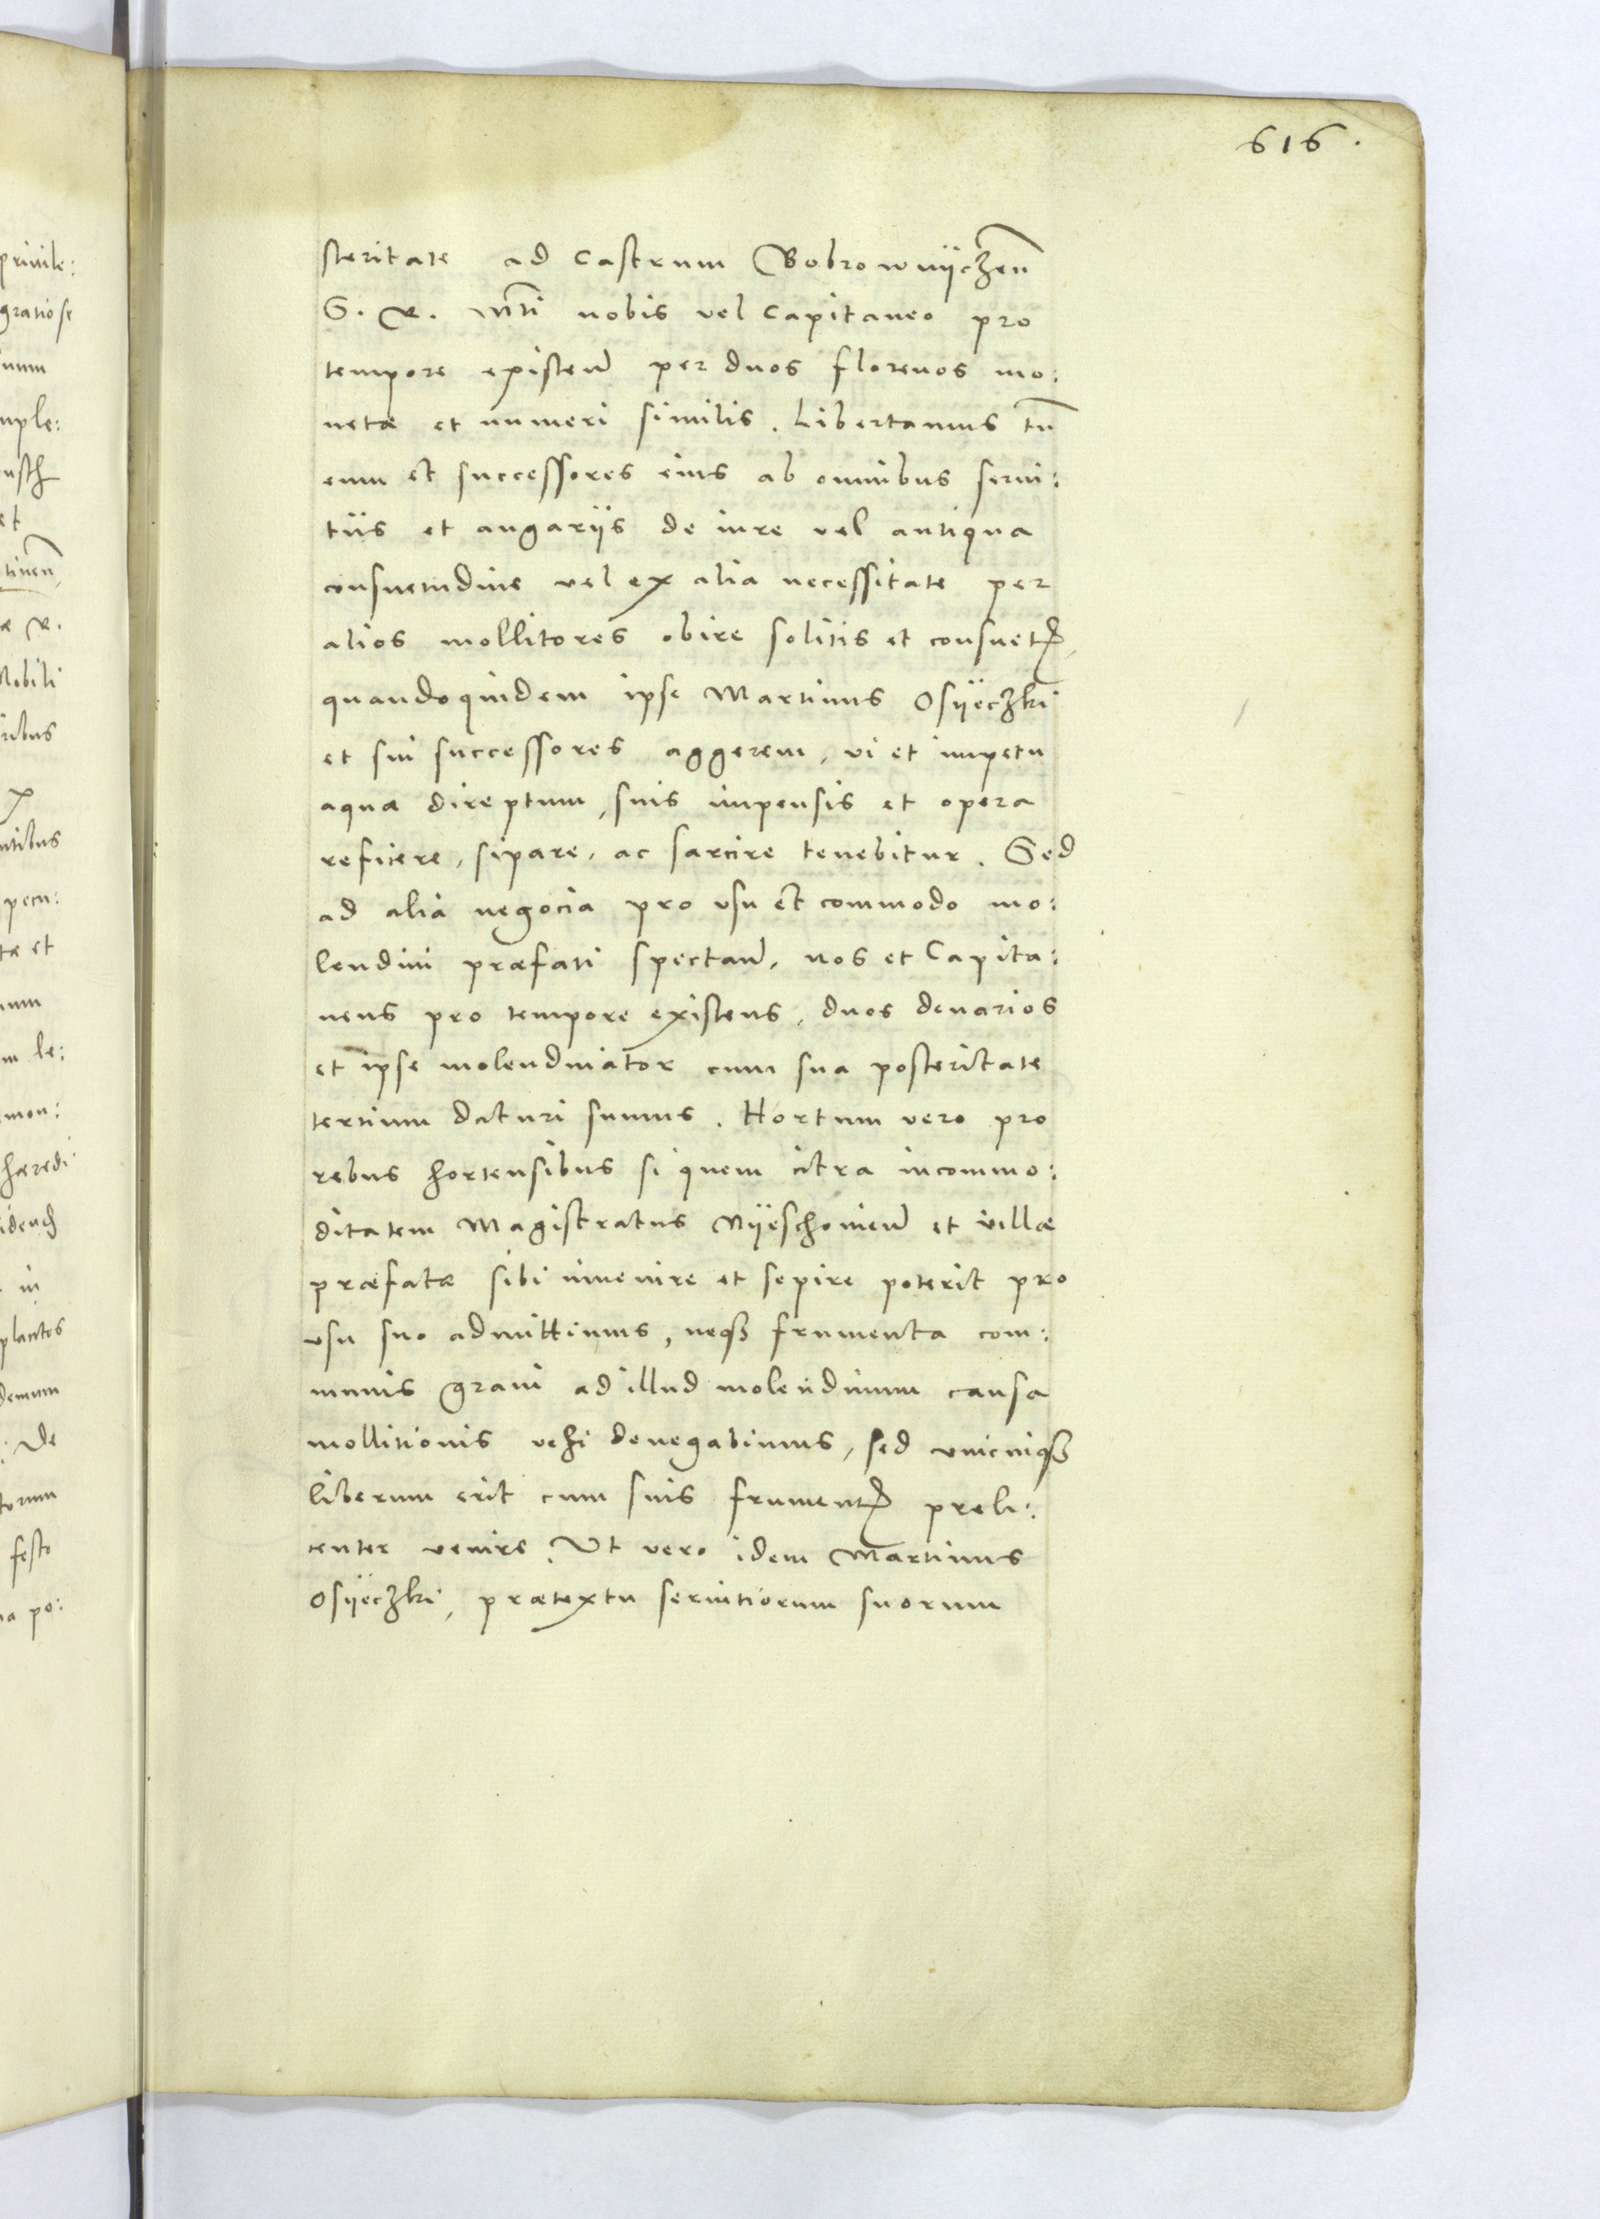 616.
steritate ad Castrum Bobrowniczen̄
S. R. Mti nobis vel Capitaneo pro
tempore existeñ per duos florenos mo:
netæ et numeri similis. Libertamus tn̄
eum et successores eius ab omnibus servi:
tiis et angariis de iure vel antiqua
consuetudine vel ex alia necessitate per
alios mollitores obire solitis et consuetꝭ,
quandoquidem ipse Martinus Osijeczki
et sui successores aggerem, vi et impetu
aquæ direptum, suis impensis et opera
reficere, sipare, ac sarcire tenebitur. Sed
ad alia negocia pro usu et commodo mo:
lendini præfati spectañ, nos et Capita:
neus pro tempore existens, duos denarios
et ipse molendinator cum sua posteritate
tertium daturi sumus. Hortum vero pro
rebus hortensibus si quem citra incommo:
ditatem Magistratus Nijeschovieñ et villæ
præfatæ sibi invenire et sepire poterit pro
usu suo admittimus, neqꝫ frumenta com:
munis grani ad illud molendinum causa
mollitionis vehi denegabimus, sed unicuiqꝫ
liberum erit cum suis frumentꝭ preli:
center venire. Ut vero idem Martinus
Osijeczki, prætextu servitiorum suorum
privile:
gratiose